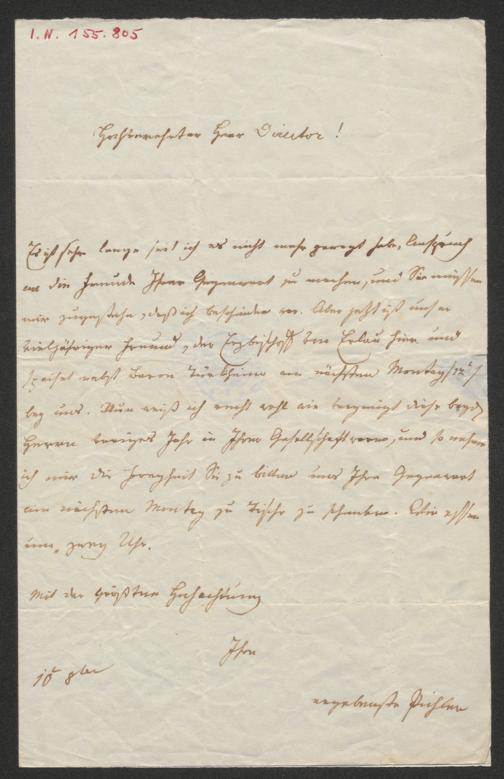 I. N. 155.805
Hochverehrter Herr Director!
Es ist sehr lange seit ich es nicht mehr gewagt habe, Anspruch
an die Freude Ihrer Gegenwart zu machen, und Sie müssen
mir zugestehn, daß ich bescheiden war. Aber jetzt ist unser
vieljähriger Freund, der Erzbischoff von Erlau hier und
speiset nebst Baron Türkheim am nächsten Montag
bey uns. Nun weiß ich recht wohl wie vergnügt diese beyden
Herren voriges Jahr in Ihrer Gesellschaft waren, und so nehme
ich mir die Freyheit Sie zu bitten uns Ihre Gegenwart
am nächsten Montag zu Tische zu schenken. Wir essen
um zwey Uhr.
Mit der größten Hochachtung
Ihre
10 8ber
ergebenste Pichler